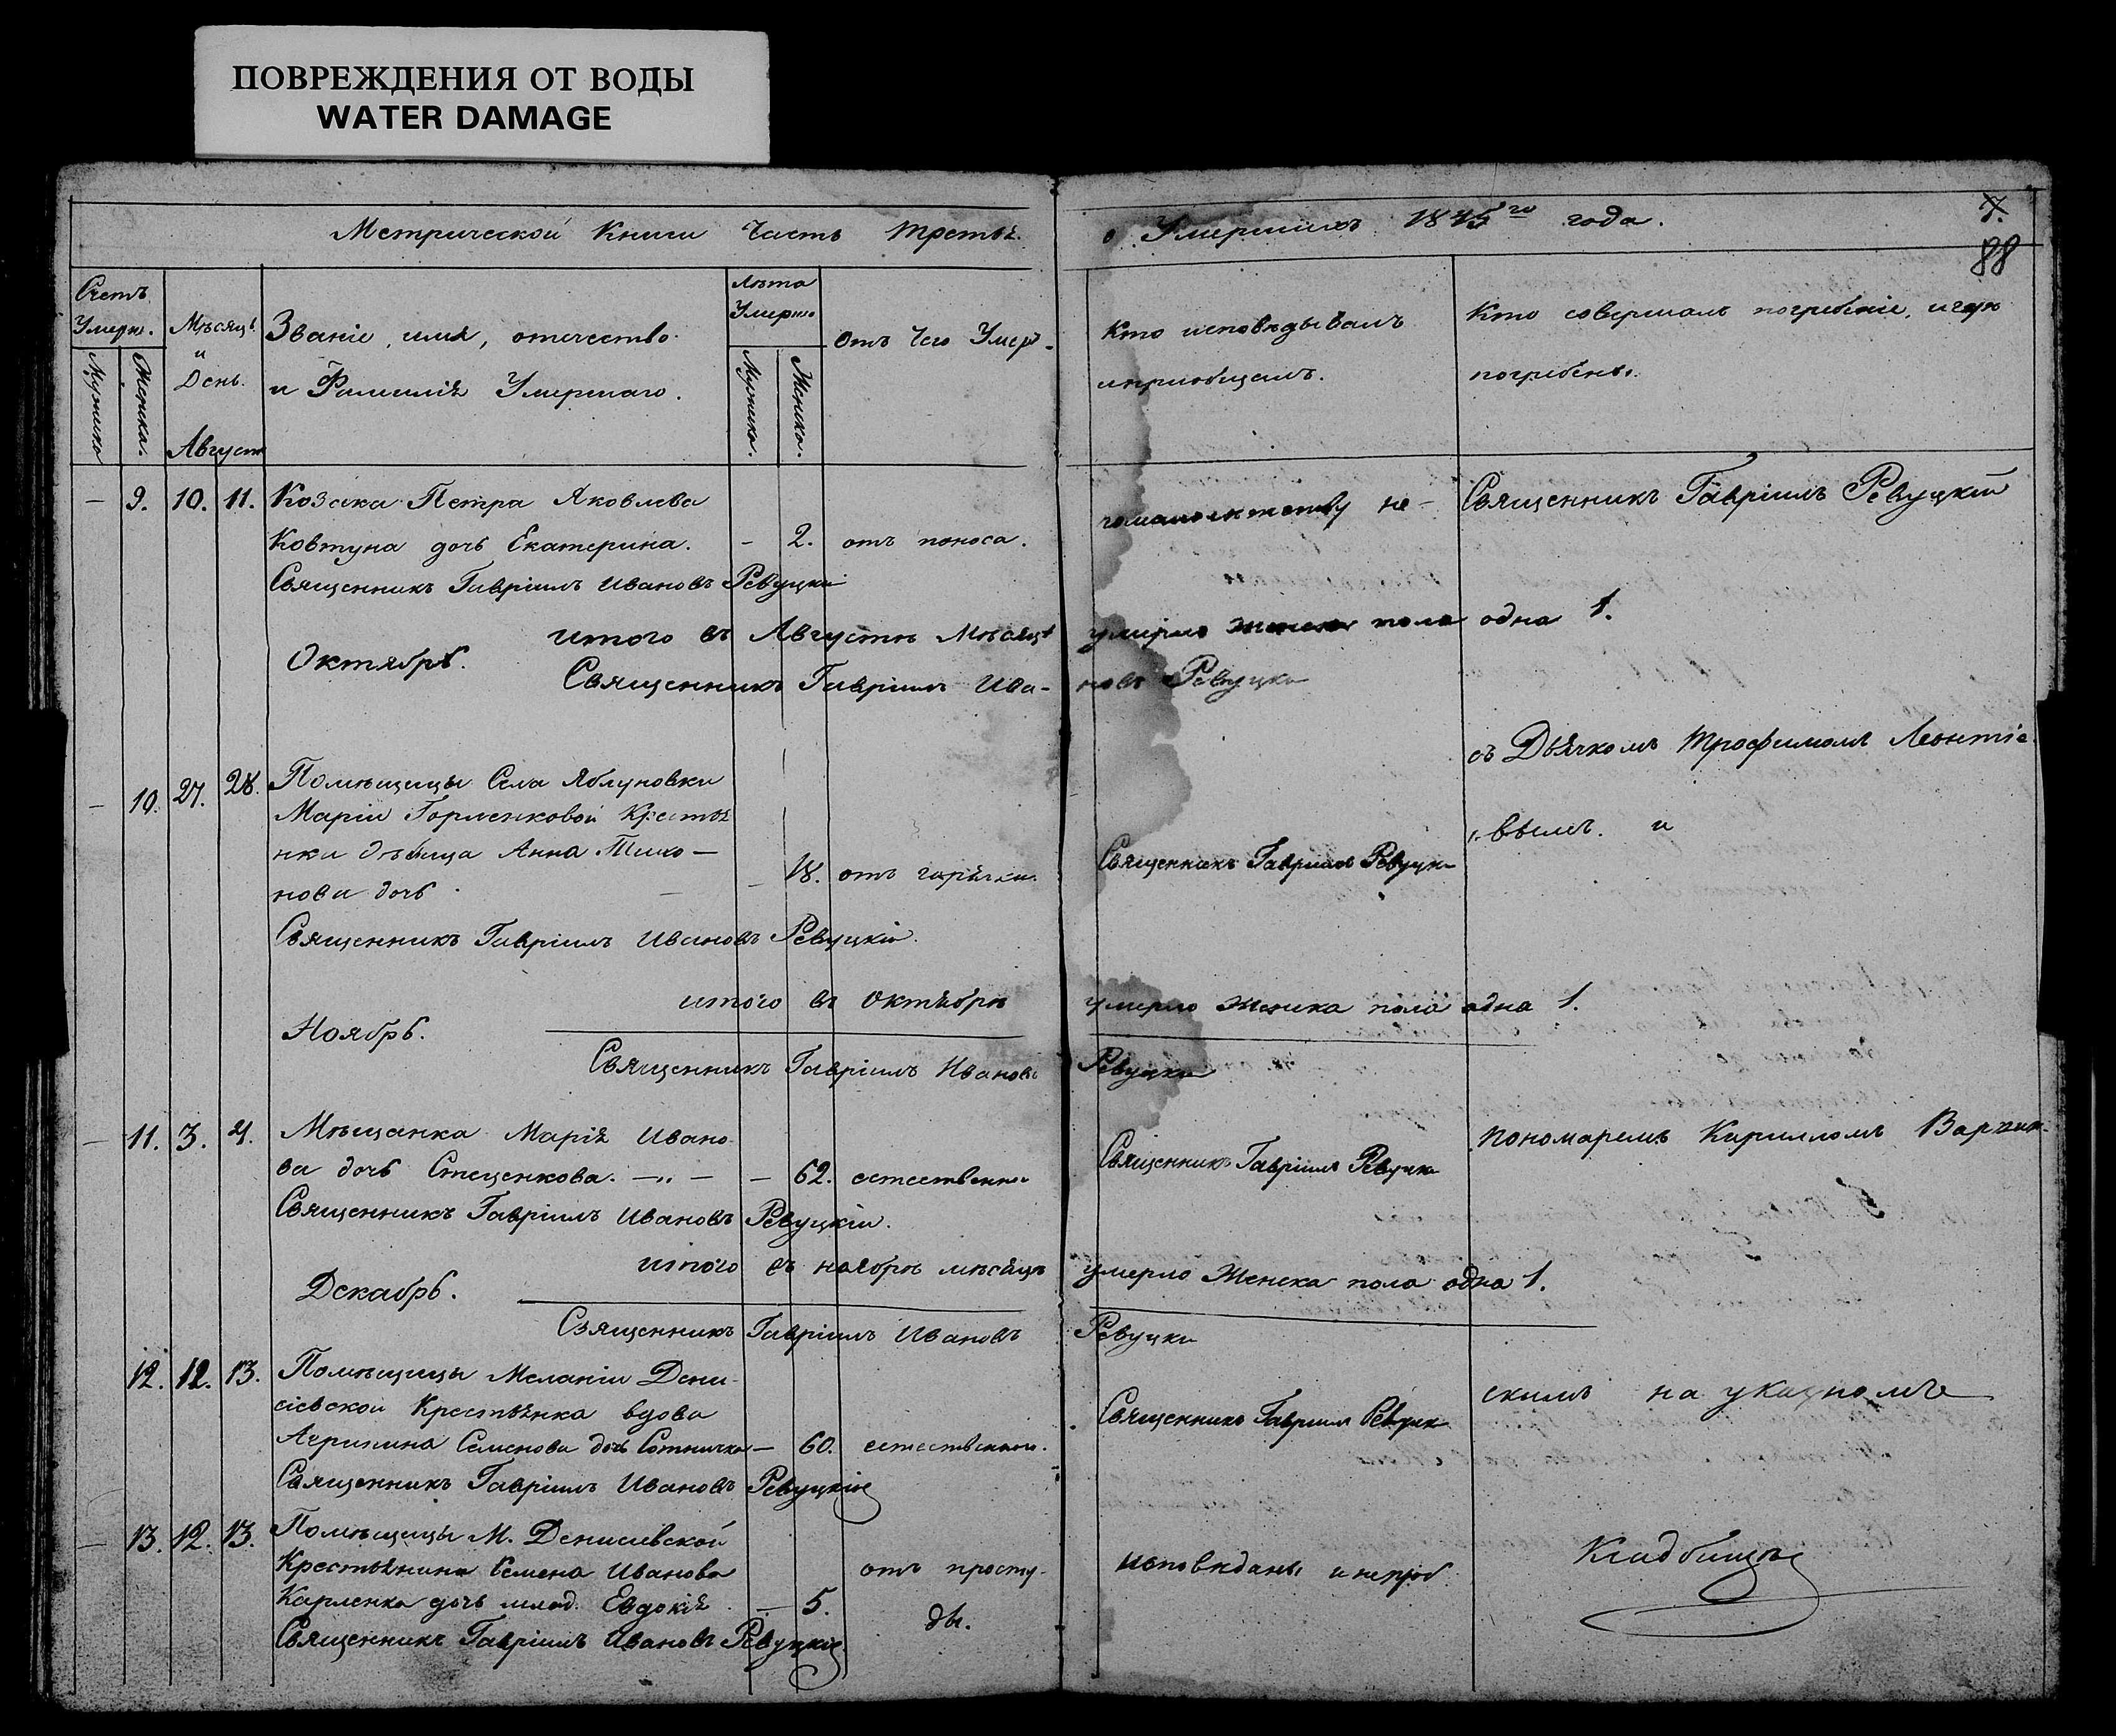 ПОВРЕЖДЕНИЯ ОТ ВОДЫ
WATER DAMAGE
Метрической Книги Часть Третья
о Умершихъ 1845го года.
7.
88
Счетъ Умерш.
Мужика
Женска.
Мѣсяцъ
и
День.
Август
Званіе, имя, отечество
и Фамилія Умершаго.
Лѣта
Умершо
Мужика.
Женска.
отъ Чего Умеръ
Кто исповѣдывалъ
и пріобщалъ.
Кто совершалъ погребеніе, и гдѣ
погребены.
— 9. 10. 11. Козака Петра Яковлева
Ковтуна дочь Екатерина. – 2. отъ поноса.
не – Священникъ Гавріилъ Ревуцкій
Священникъ Гавріилъ Ивановъ Ревуцкій
итого въ Августѣ Мѣсяцѣ умерло женска пола одна 1.
Октябрь.
Священникъ Гавріилъ Ива- новъ Ревуцкі
съ Дьячкомъ Трофимомъ Леонтіе
– 10. 27. 28. Помѣщицы Села Яблуновки
Маріи Горленковой Крестья
нки дѣвица Анна Тимо –
нова дочь – – 18. отъ горячки.
Священникъ Гавріилъ Ревуцкі
вымъ. и
Священникъ Гавріилъ Ивановъ Ревуцкій.
итого въ Октябрѣ умерло Женска пола одна 1.
Ноябрь.
Священникъ Гавріилъ Ивановъ Ревуцкій
— 11. 3. 4. Мѣщанка Марія Ивано
ва дочь Стеценкова. – 62. естественно
Священникъ Гавріилъ Ревуцкі
пономаремъ Кирилломъ Варжин-
Священникъ Гавріилъ Ивановъ Ревуцкій.
итого въ ноябрѣ мѣсяцѣ умерло Женска пола одна 1.
Декабрь.
Священникъ Гавріилъ Ивановъ Ревуцкі
12. 12. 13. Помѣщицы Меланіи Дени-
сіевской Крестьянка вдова
Агрипина Семенова дочь Сотничка – 60. естественно.
Священникъ Гавріилъ Ревуцк
скимъ на указномъ
Священникъ Гавріилъ Ивановъ Ревуцкій
— 13. 12. 13. Помѣщицы М. Денисіевской
Крестьянина Семена Иванова
Карленка дочь млад. Евдокія – 5. отъ просту-
ды.
исповѣданы и непріоб
Кладбищѣ
Священникъ Гавріилъ Ивановъ Ревуцкій